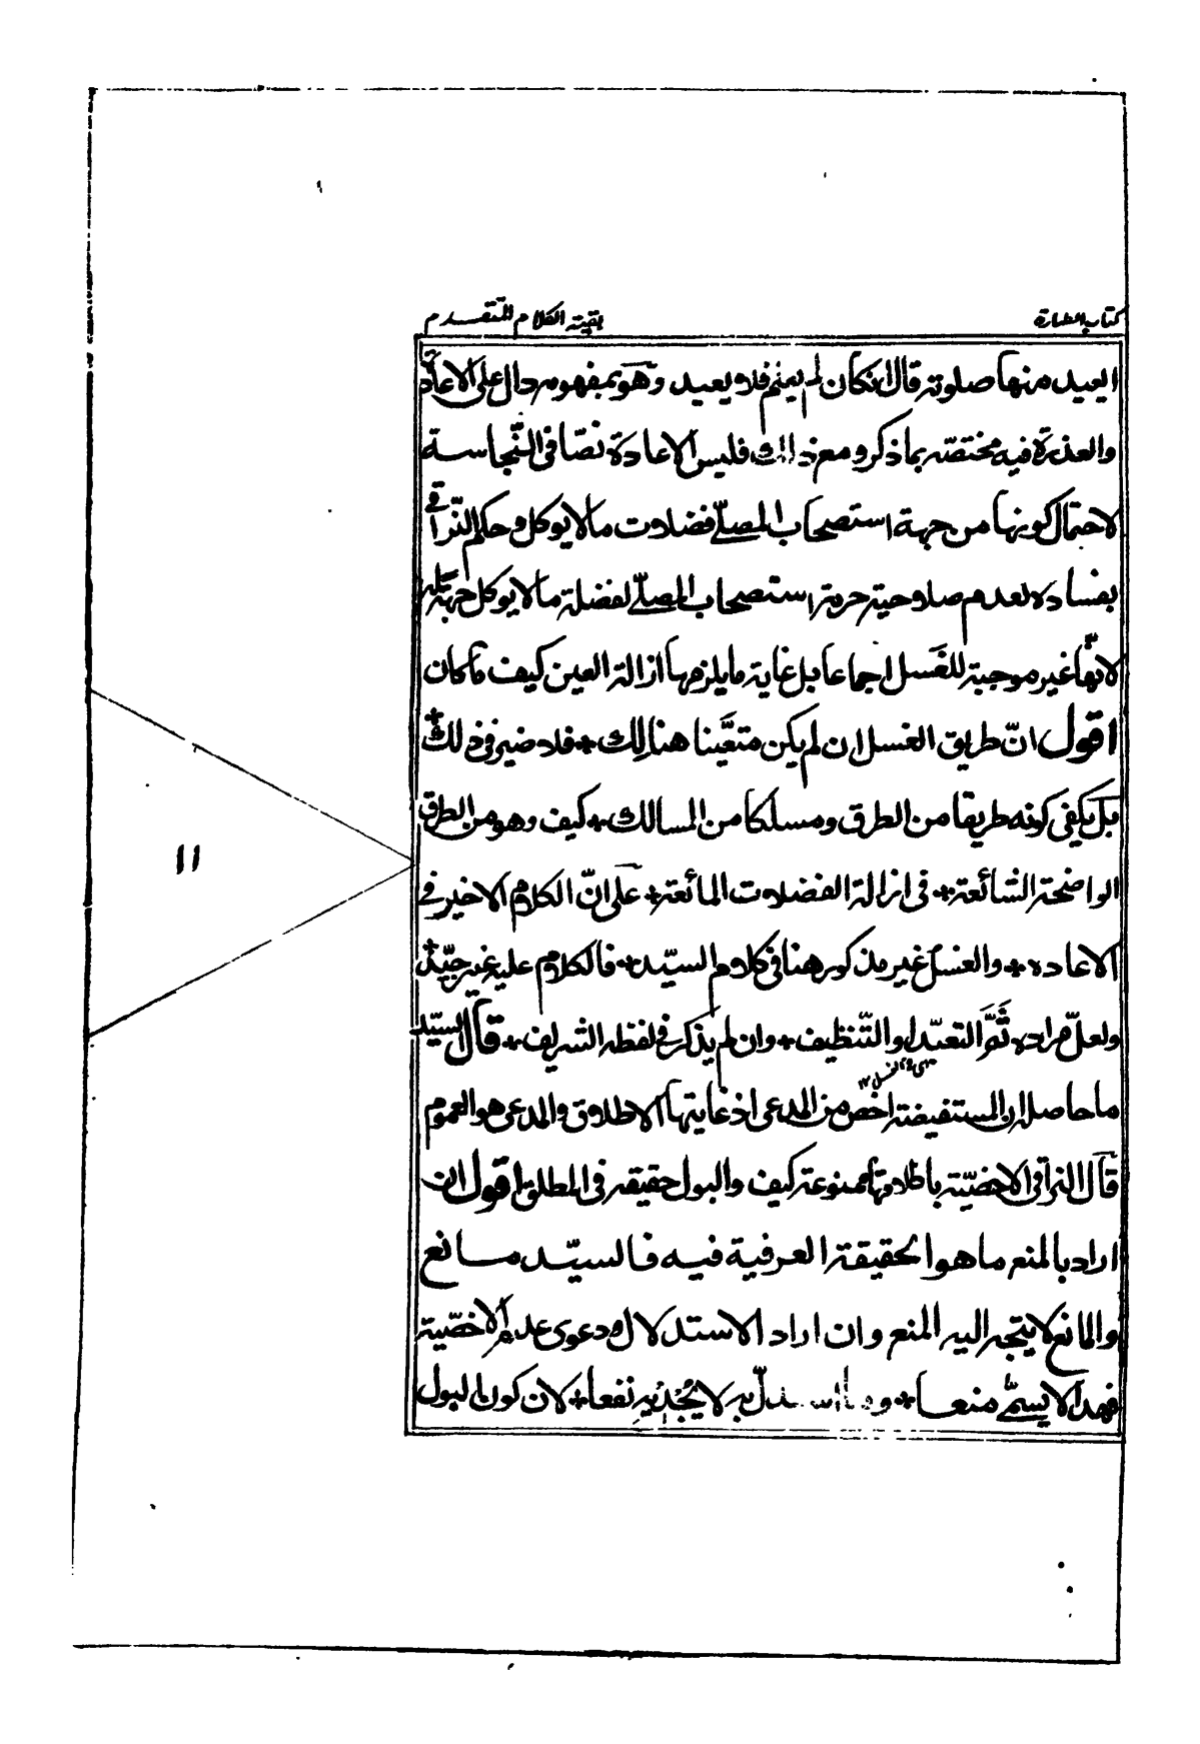 كتاب الطهارة
بقية الكلام المتقدم
ايعيد منها صلوته قال ان كان لم يعلم فلا يعيد وهو بمفهومه دال على الاعادة
والعذرة فيه مختصة بما ذكر ومع ذلك فليس الاعادة نصّا في النّجاسة
لاحتمال كونها من جهة استصحاب المصلّي فضلات ما لا يوكل وحكم النّراقي
بفساده لعدم صلاحية حرمة استصحاب المصلّي لفضلة ما لا يوكل جهة
لانّها غير موجبة للغَسل اجماعا بل غاية ما يلزمها ازالة العين كيف ما كان
اقول انّ طريق الغسل ان لم يكن متعَيَّنا هنالك + فلا ضير في ذلك +
بل يكفي كونه طريقا من الطرق ومسلكا من المسالك + كيف وهو من الطرق
الواضحة الشائعة + في ازالة الفضلات المائعة + على انّ الكلام الاخير في
الاعاده + والغسل غير مذكور هنا في كلام السيّد + فالكلام عليه غير جيّد +
ولعلّ مراده ثَمَّ التعبّد او التّنظيف + وان لم يذكر في لفظه الشريف + قال السيّد
ما حاصله ان المستفيضة اخص من المدعى اذ غايتها الاطلاق والمدعى هو العموم
قال النراقي الاخصّية باطلاقها ممنوعة كيف والبول حقيقة في المطلق اقول ان
اراد بالمنع ما هو الحقيقة العرفية فيه فالسيّد مانع
والمانع لا يتجه اليه المنع وان اراد الاستدلال ودعوى عدم الاخصّية
فهذا لا يسمّى منعا + وما استدلّ به لا يُجْدِيه نفعا + لان كون البول
١١